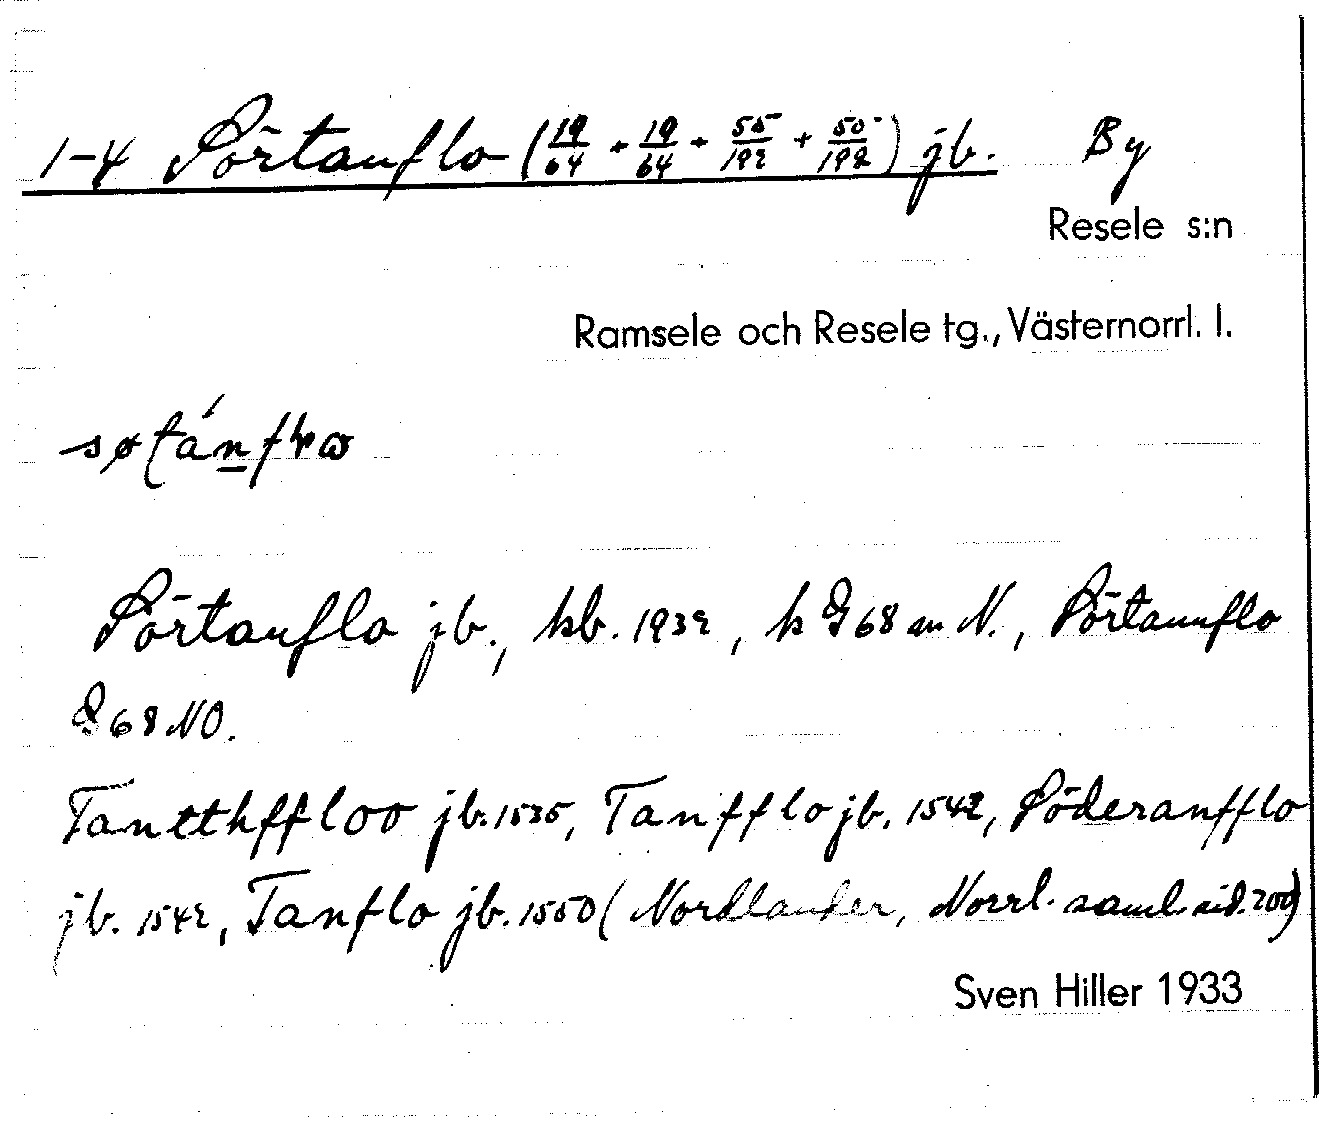 1-4 Sörtanflo (19/64 + 19/64 + 55/192 + 50/192) jb. By
Resele s:n
Ramsele och Resele tg., Västernorrl. l.
Sörtanflo jb., kb. 1932, k G68 an N., Sörtannflo
G68 NO.
Tanetthffloo jb. 1535, Tanfflo jb. 1542, Söderanfflo
jb. 1542, Tanflo jb. 1550 (Nordlander, Norrl. saml. sid. 200)
Sven Hiller 1933